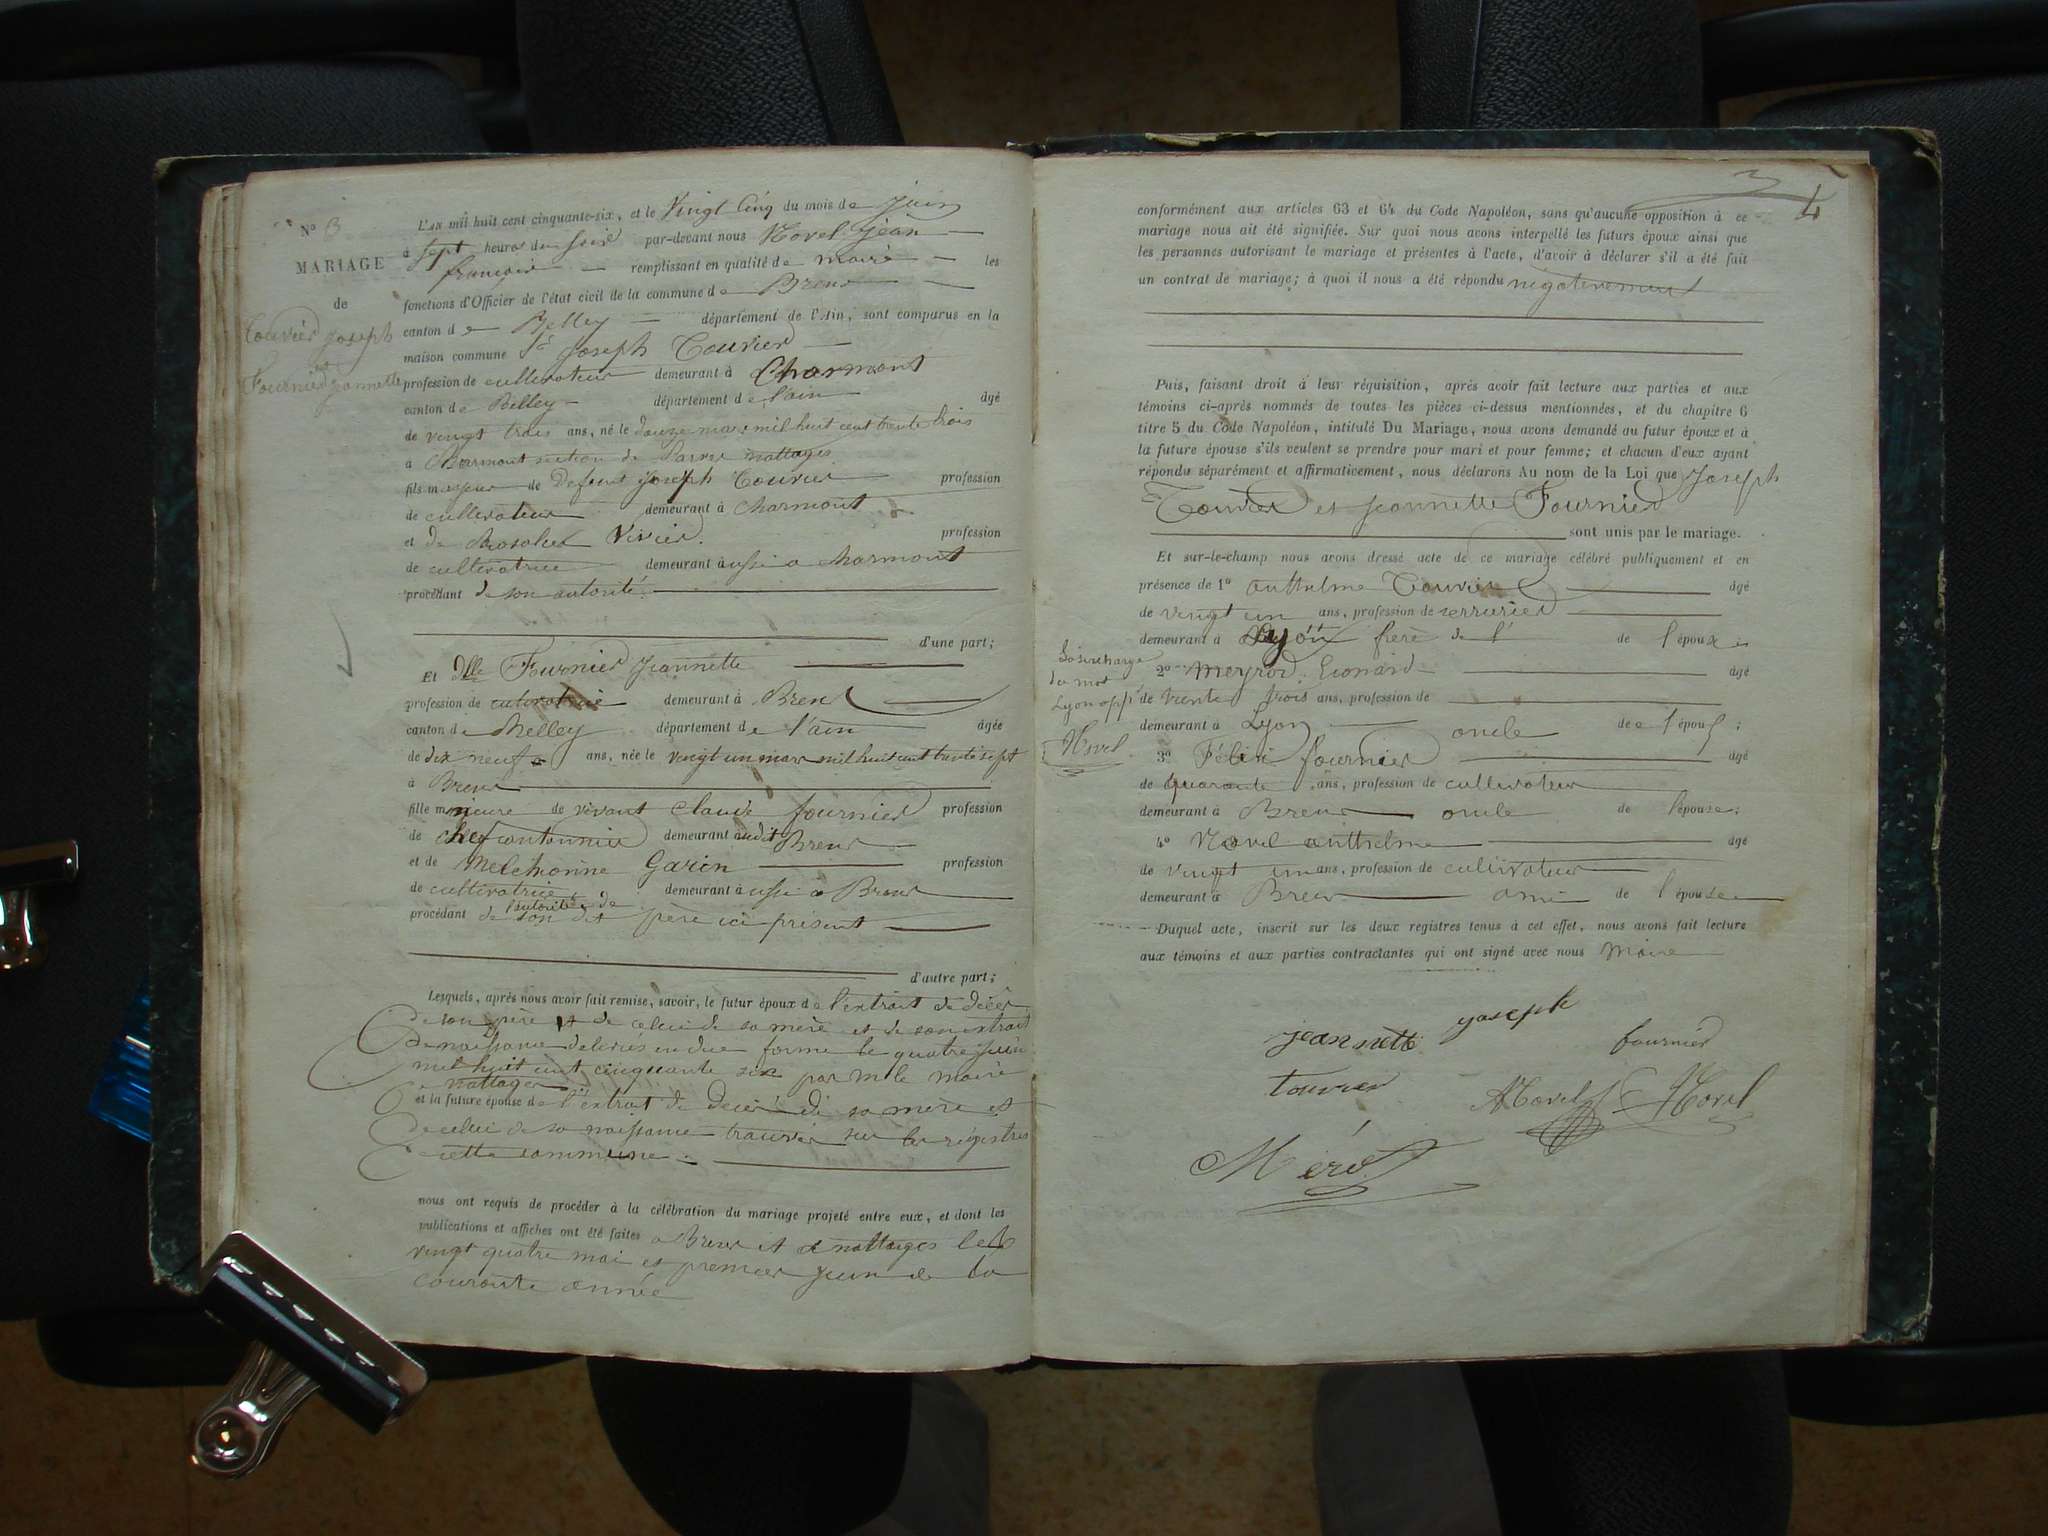 N° 3
MARIAGE
de
Touvier Joseph
et
Fournier Jeannette
L'An mil huit cent cinquante-six, et le Vingt Cinq du mois de Juin
à sept heures du soir par-devant nous Novel Jean
françois remplissant en qualité de maire les
fonctions d'Officier de l'état civil de la commune de Brens
canton de Belley département de l'Ain, sont comparus en la
maison commune Sr Joseph Touvier
profession de cultivateur demeurant à Charmont
canton de Belley département de l'ain âgé
de vingt trois ans, né le douze mars mil huit cent trente trois
à Charmont section de Parves nattages
fils majeur de Defunt Joseph Touvier profession
de cultivateur demeurant à Charmont
et de Rosalie Vivier profession
de cultivatrice demeurant aussi a Charmont
procédant de son autorité.
d'une part;
Et Dlle Fournier Jeannette
profession de cultivatrice demeurant à Brens
canton de Belley département de l'ain âgée
de dix neuf ans, née le vingt un mars mil huit cent trente sept
à Brens
fille mineure de vivant Claude fournier profession
de chef cantonnier demeurant audit Brens
et de Melchionne Garin profession
de cultivatrice demeurant aussi a Brens
procédant de l'autorité de son dit père ici présent
d'autre part;
Lesquels, après nous avoir fait remise, savoir, le futur époux de l'extrait de décès
de son père et de celui de sa mère et de son extrait
de naissance delivrés en due forme le quatre juin
mil huit cent cinquante six par m le maire
de nattages
et la future épouse de l'extrait de décès de sa mère et
de celui de sa naissance trouvés sur les régistres
de cette commune.
nous ont requis de procéder à la célébration du mariage projeté entre eux, et dont les
publications et affiches ont été faites a Brens et a nattages les
vingt quatre mai et premier juin de la
courante année
4
conformément aux articles 63 et 64 du Code Napoléon, sans qu'aucune opposition à ce
mariage nous ait été signifiée. Sur quoi nous avons interpellé les futurs époux ainsi que
les personnes autorisant le mariage et présentes à l'acte, d'avoir à déclarer s'il a été fait
un contrat de mariage; à quoi il nous a été répondu négativement
Puis, faisant droit à leur réquisition, après avoir fait lecture aux parties et aux
témoins ci-après nommés de toutes les pièces ci-dessus mentionnées, et du chapitre 6
titre 5 du Code Napoléon, intitulé Du Mariage, nous avons demandé au futur époux et à
la future épouse s'ils veulent se prendre pour mari et pour femme; et chacun d'eux ayant
répondu séparément et affirmativement, nous déclarons Au nom de la Loi que Joseph
Touvier et Jeannette Fournier
sont unis par le mariage.
Et sur-le-champ nous avons dressé acte de ce mariage célébré publiquement et en
présence de 1° anthelme Touvier âgé
de vingt un ans, profession de serrurier
demeurant à Lyon frère de l' de l'époux
2° Meyrod Léonard âgé
de trente trois ans, profession de
demeurant à Lyon oncle de l'époux;
3° Félix fournier âgé
de quarante ans, profession de cultivateur
demeurant à Brens oncle de l'épouse;
4° Novel anthelme âgé
de vingt un ans, profession de cultivateur
demeurant à Brens ami de l'épouse
La surcharge
du mot
Lyon appé
Novel
Duquel acte, inscrit sur les deux registres tenus à cet effet, nous avons fait lecture
aux témoins et aux parties contractantes qui ont signé avec nous Maire
jeannette joseph fournier
touvier ANovel Novel